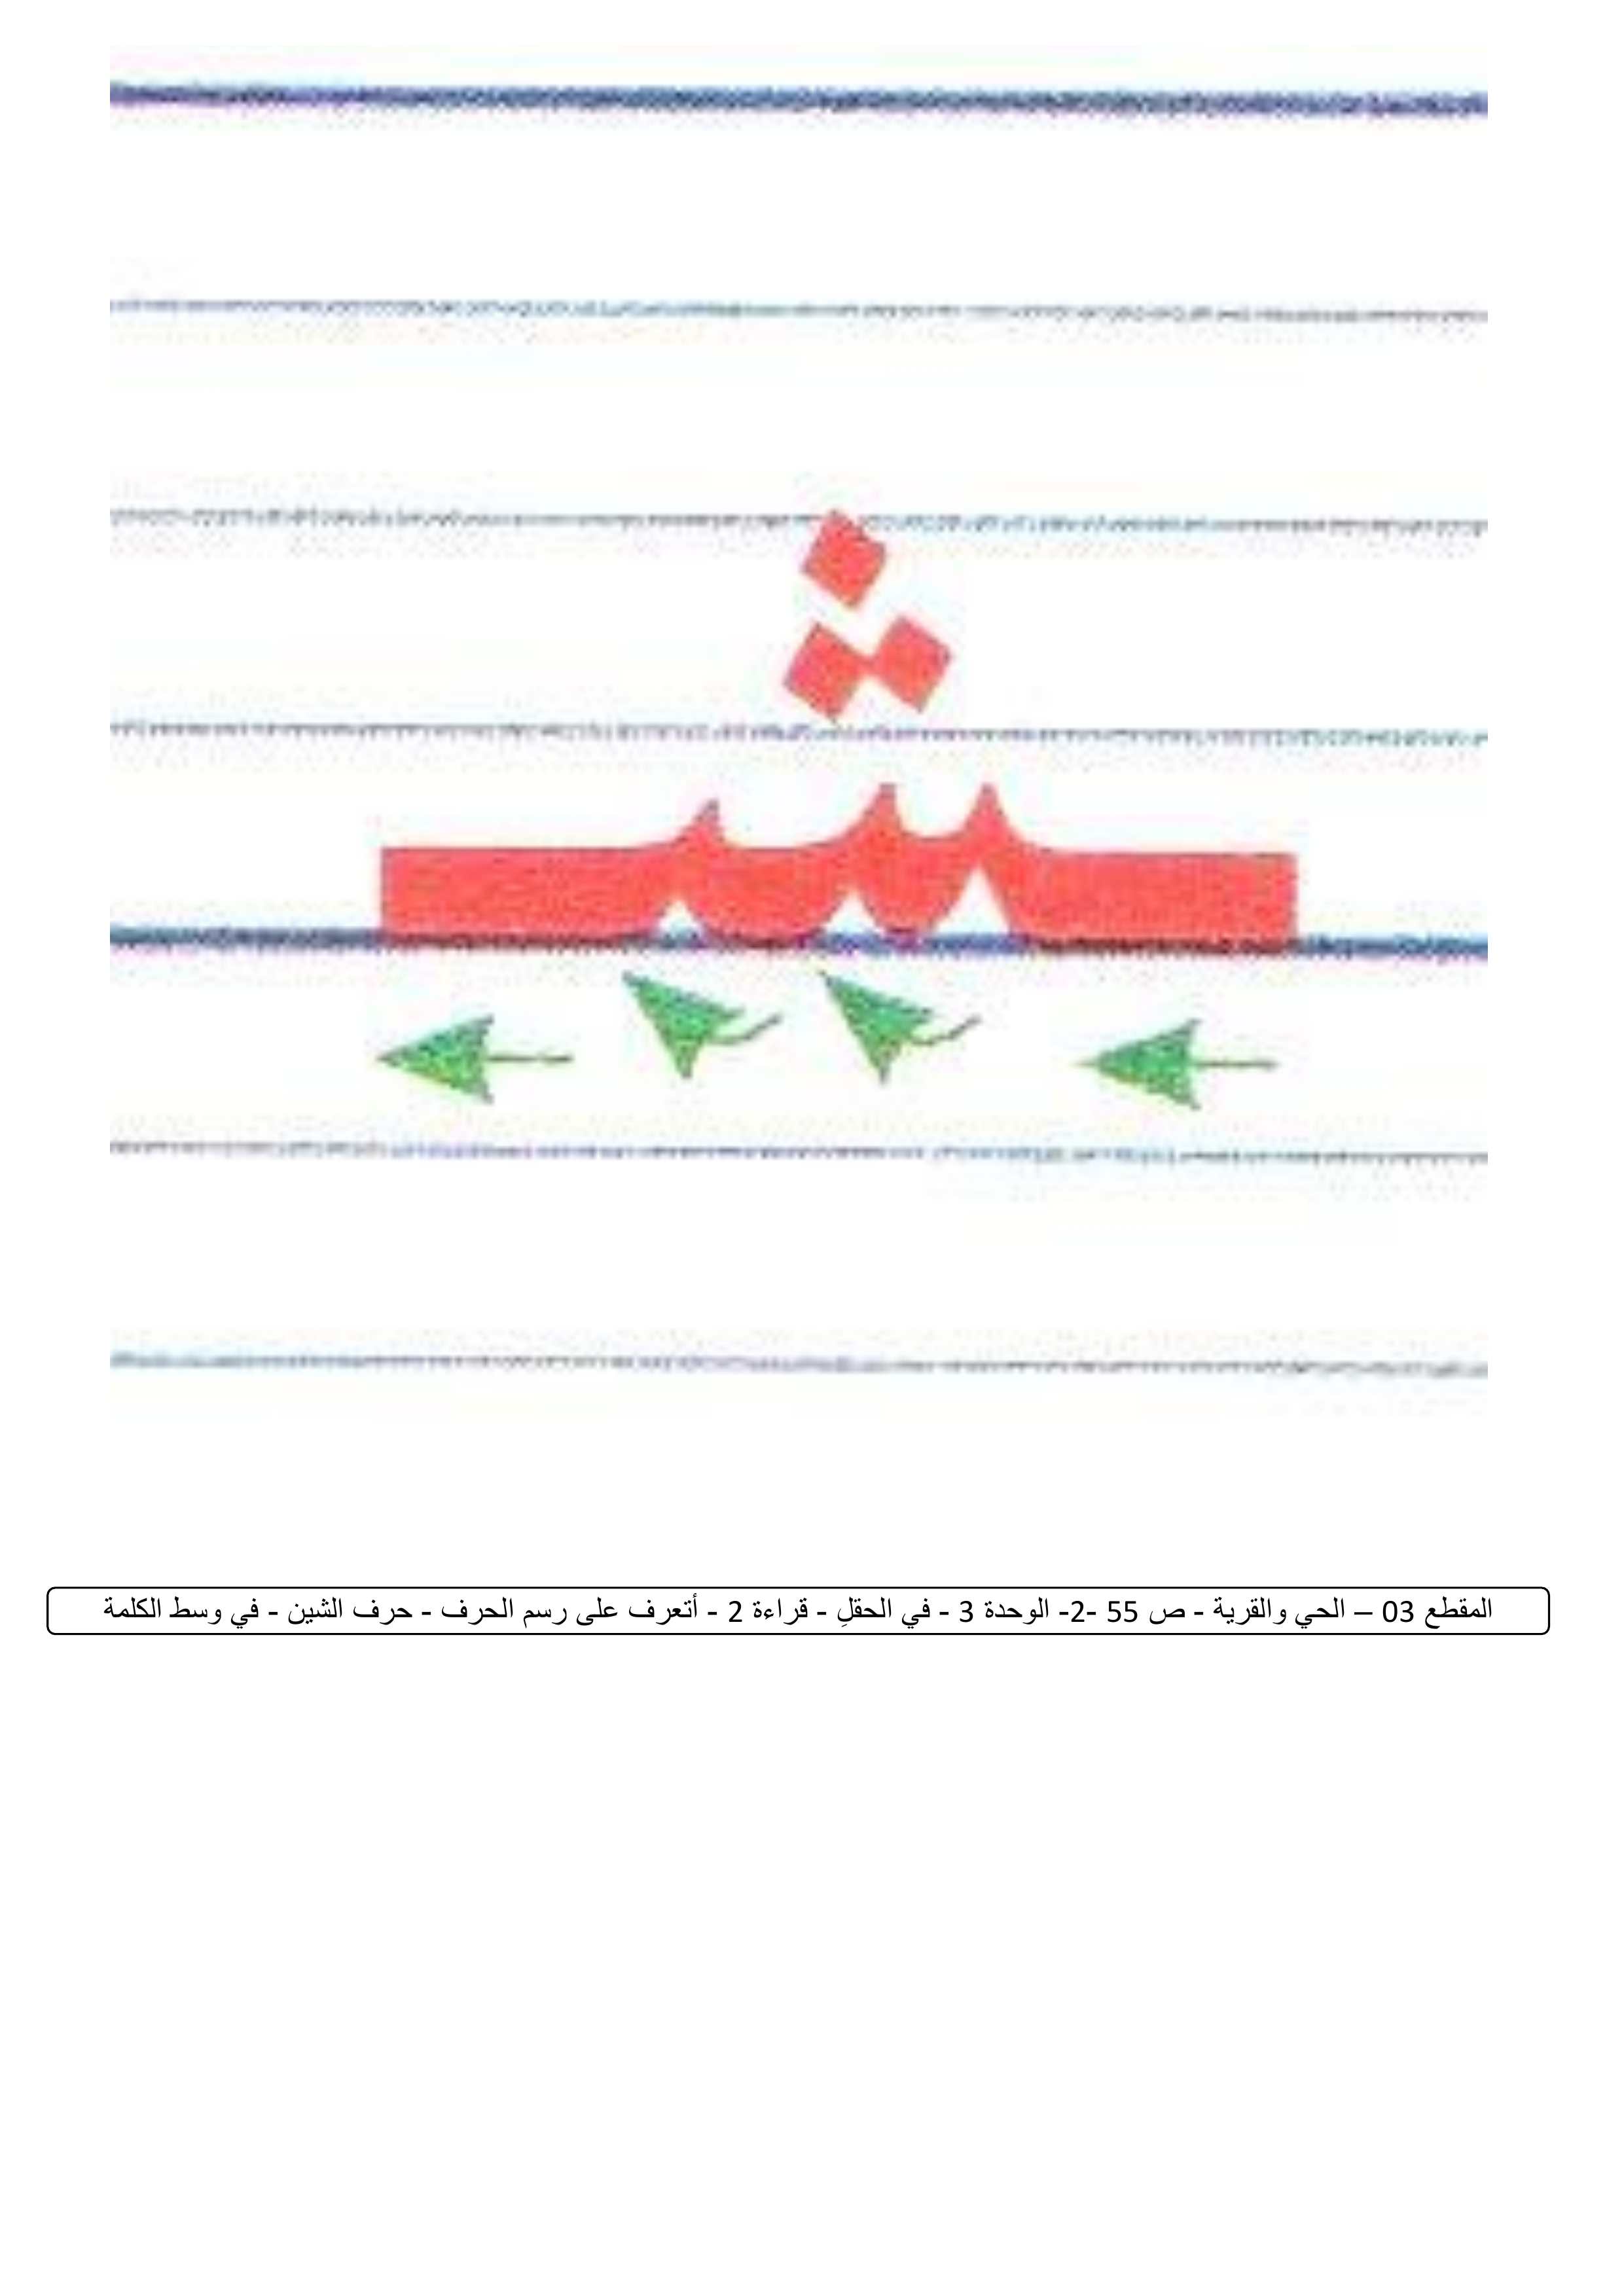 ـشـ
المقطع 03 – الحي والقرية - ص 55 -2- الوحدة 3 - في الحقلِ - قراءة 2 - أتعرف على رسم الحرف - حرف الشين - في وسط الكلمة